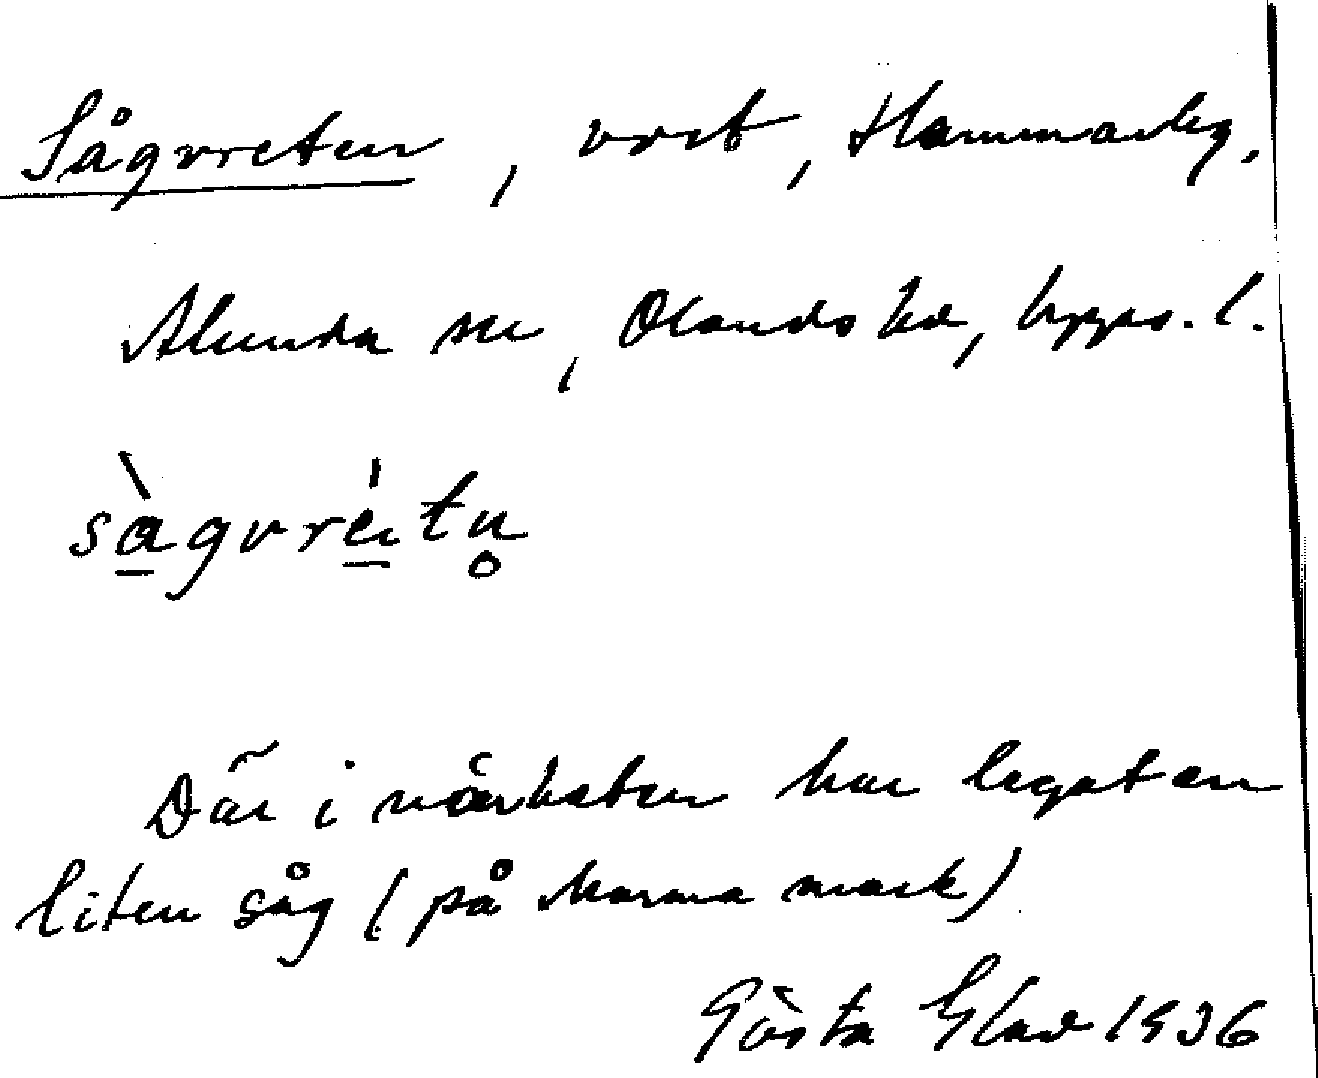 Sågvreten, vret, Hammarby,
Alunda sn, Olands hd, Upps. l.
sàgvréitn̥
Där i närheten har legat en
liten såg (på Marma mark)
Gösta Glad 1936